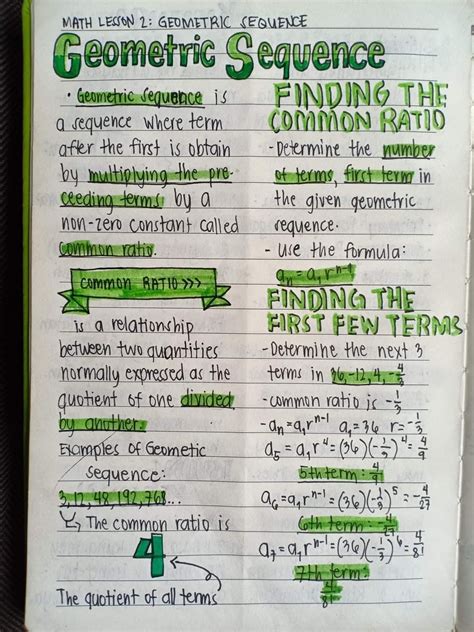 MATH LESSON 2: GEOMETRIC SEQUENCE
Geometric Sequence
• Geometric sequence is
a sequence where term
after the first is obtain
by multiplying the pre-
ceeding terms by a
non-zero constant called
common ratio.
COMMON RATIO >>>
is a relationship
between two quantities
normally expressed as the
quotient of one divided
by another.
Examples of Geometic
sequence:
3, 12, 48, 192, 768...
↳ The common ratio is
4
The quotient of all terms
FINDING THE
COMMON RATIO
- Determine the number
of terms, first term in
the given geometric
sequence.
- Use the formula:
aₙ = a₁rⁿ⁻¹
FINDING THE
FIRST FEW TERMS
- Determine the next 3
terms in 36, -12, 4, -4/3
- common ratio is -1/3
- aₙ = a₁rⁿ⁻¹ a₁ = 36 r = -1/3
a₅ = a₁r⁴ = (36)(-1/3)⁴ = 4/9
5th term: 4/9
a₆ = a₁rⁿ⁻¹ = (36)(-1/3)⁵ = -4/27
6th term =
a₇ = a₁rⁿ⁻¹ = (36)(-1/3)⁶ = 4/81
7th term:
4/81